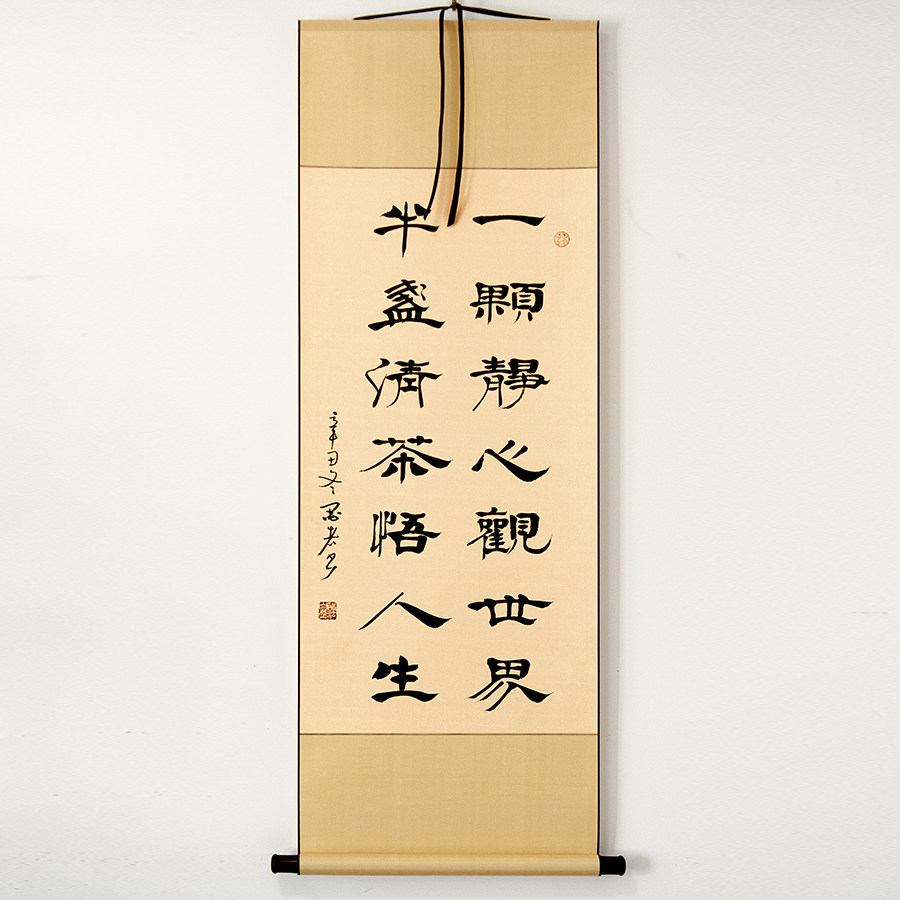 一顆靜心觀世界
半盞清茶悟人生
辛丑冬